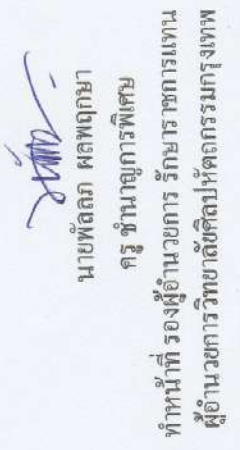 นายพัลลภ ผลพฤกษา
ครู ชำนาญการพิเศษ
ทำหน้าที่ รองผู้อำนวยการ รักษาราชการแทน
ผู้อำนวยการวิทยาลัยศิลปหัตถกรรมกรุงเทพ